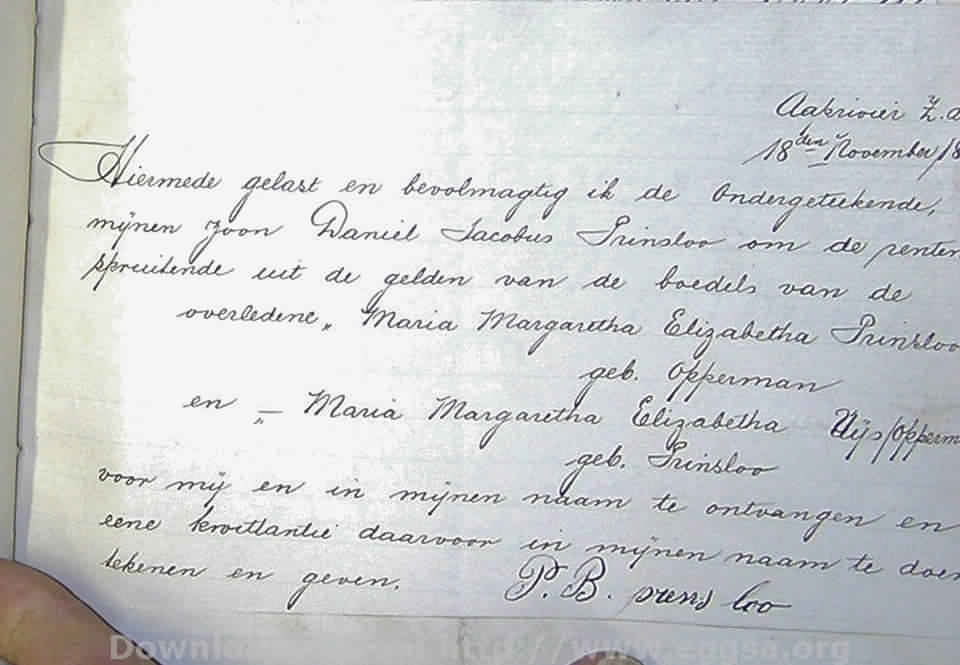 Aakrivier Z.A
18den November /18
Hiermede gelast en bevolmagtig ik de Ondergeteekende,
mijnen Zoon Daniel Jacobus Prinsloo om de renten
spruitende uit de gelden van de boedels van de
overledene „ Maria Margaretha Elizabetha Prinsloo
geb. Opperman
en „ — Maria Margaretha Elizabetha Uijs/Opperm
geb. Prinsloo
voor mij en in mijnen naam te ontvangen en
eene kwitlantie daarvoor in mijnen naam te doen
tekenen en geven. P. B. prens loo
Downl http://www.eggsa.org